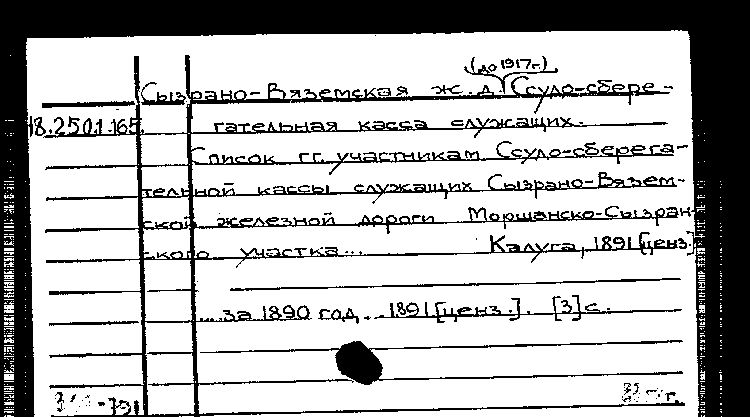 (до 1917г.)
Сызрано-Вяземская ж.д. Ссудо-сбере-
18.250.1.165. гательная касса служащих.
Список гг. участникам Ссудо-сберега-
тельной кассы служащих Сызрано-Вязем-
ской железной дороги Моршанско-Сызран-
ского участка... Калуга, 1891 [ценз.]
... за 1890 год. .. 1891 [ценз.]. [3] с.